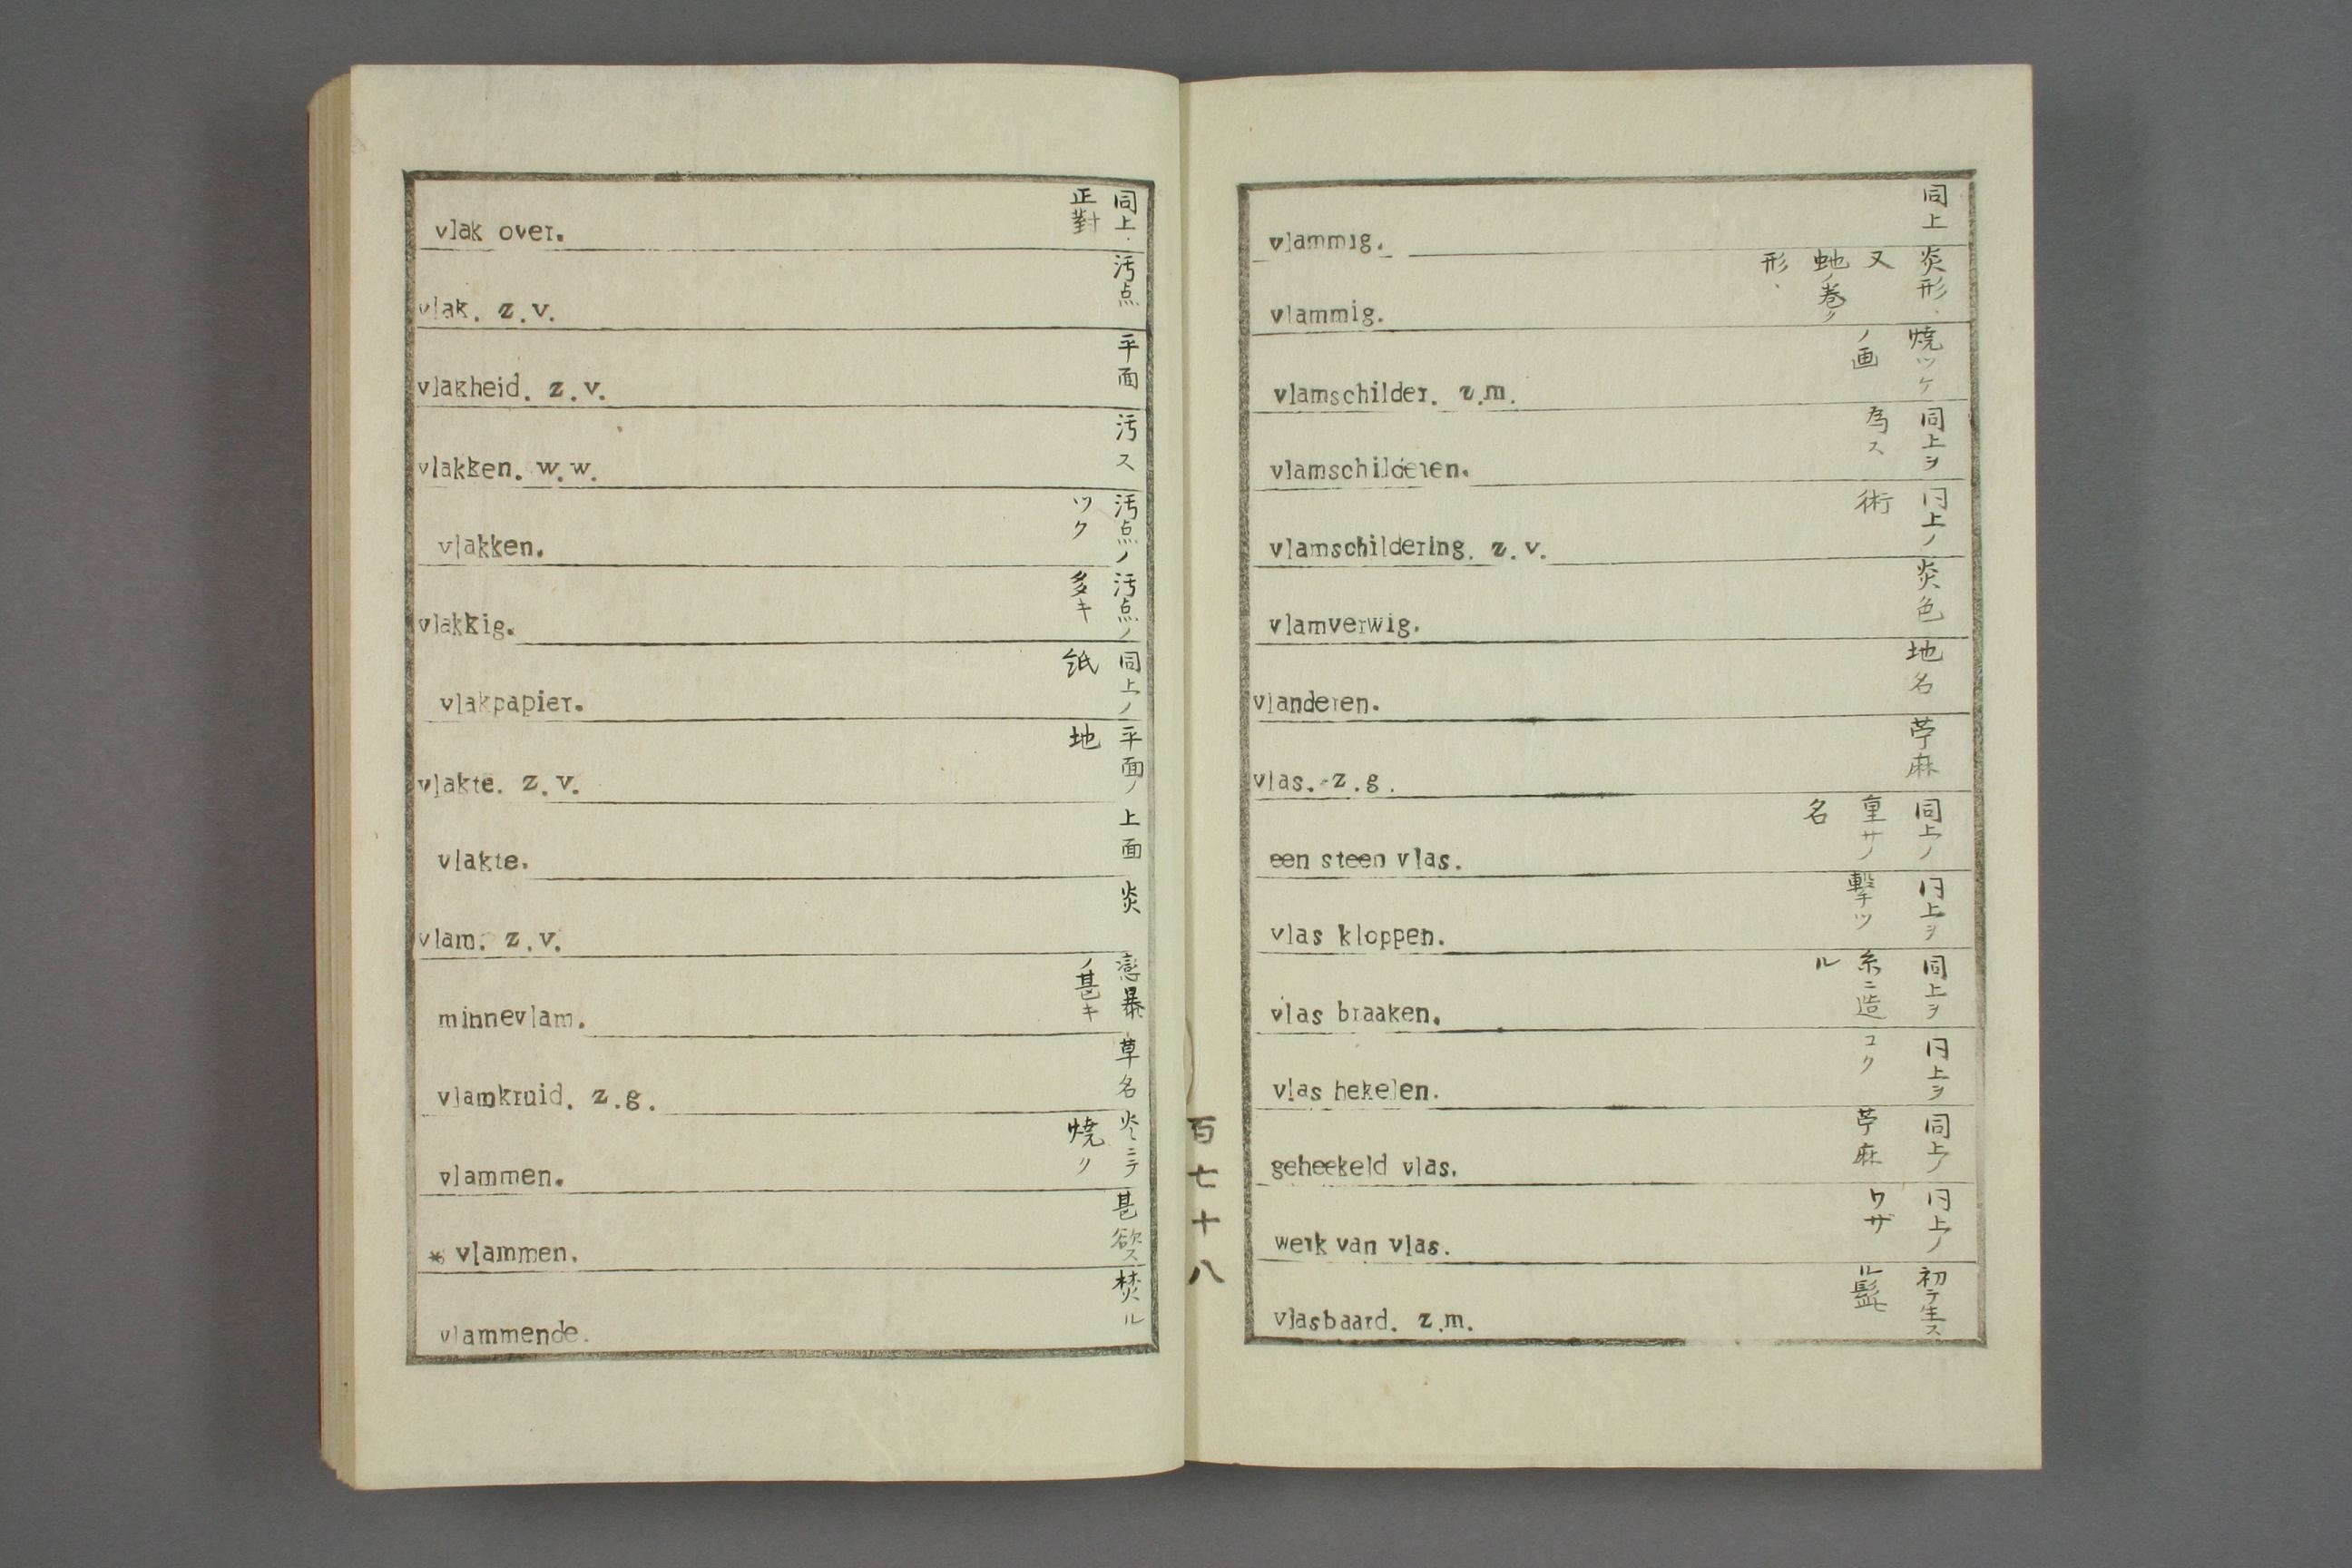 vlak over. 同上 正對
vlak. z.v. 汚点
vlakheid. z.v. 平面
vlakken. w.w. 汚ス
vlakken. 汚点ノツク
vlakkig. 汚点ノ多キ
vlakpapier. 同上ノ紙
vlakte. z.v. 平面ノ地
vlakte. 上面
vlam. z.v. 炎
minnevlam. 暴ノ甚キ
vlamkruid. z.g. 草名
vlammen. 炎ニテ焼ク
* vlammen. 甚欲ス
vlammende. 焚ル
百七十八
vlammig. 同上
vlammig. 炎形. 又虵ノ巻ク形.
vlamschilder. z.m. 焼ツケノ画
vlamschilderen. 同上ヲ為ス
vlamschildering. z.v. 同上ノ術
vlamverwig. 炎色
vlanderen. 地名
vlas. z.g. 苧麻
een steen vlas. 同上ノ重サノ名
vlas kloppen. 同上ヲ撃ツ
vlas braaken. 同上ヲ糸ニ造ル
vlas hekelen. 同上ヲコク
geheekeld vlas. 同上ノ苧麻
werk van vlas. 同上ノワザ
vlasbaard. z.m. 初テ生スル髭